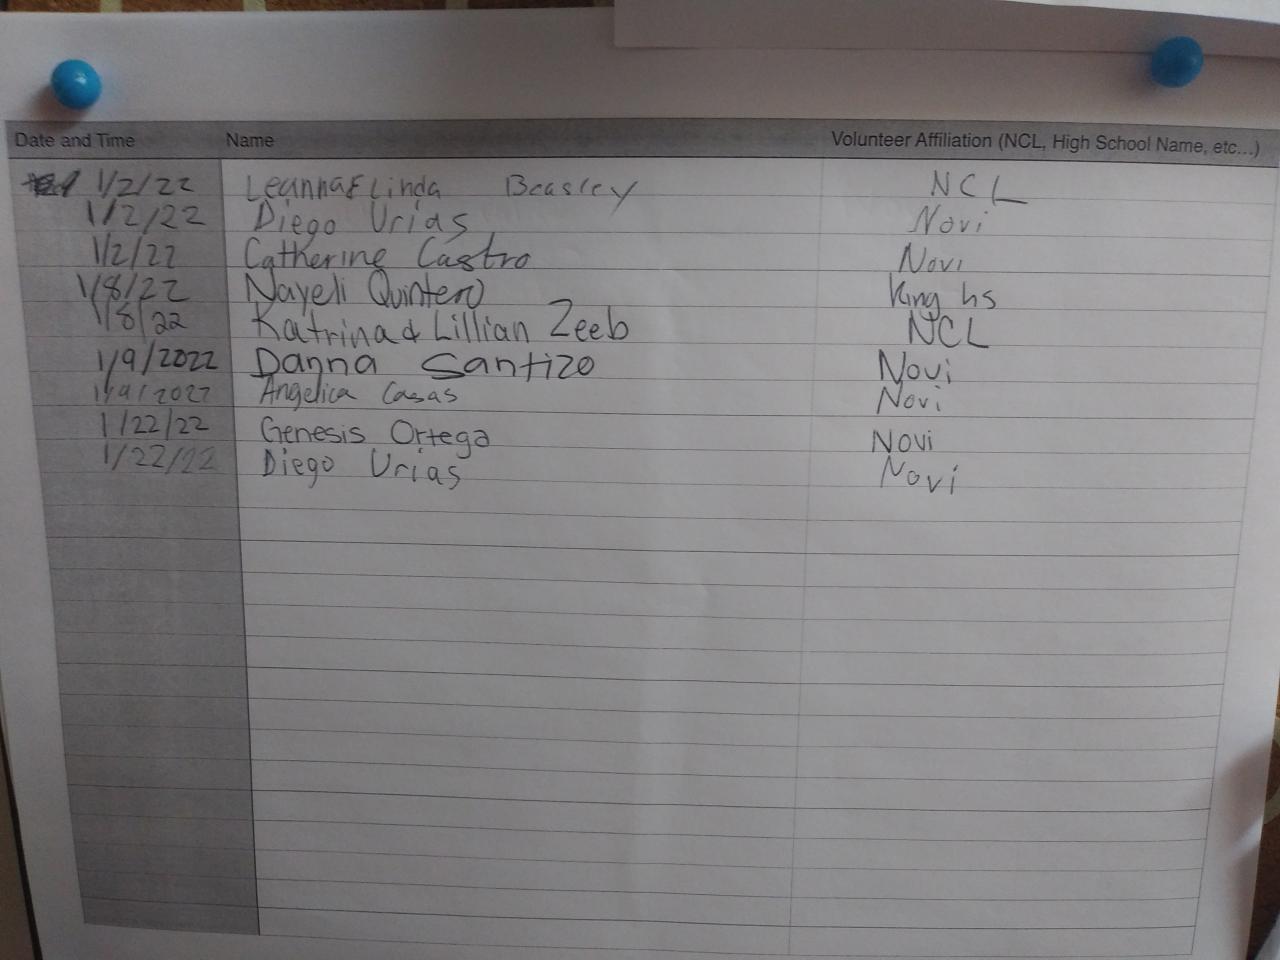 Date and Time Name Volunteer Affiliation (NCL, High School Name, etc...)
1/2/22 Leanna & Linda Beasley NCL
1/2/22 Diego Urias Novi
1/2/22 Catherine Castro Novi
1/8/22 Nayeli Quintero King hs
1/8/22 Katrina & Lillian Zeeb NCL
1/9/2022 Danna Santizo Novi
1/9/2022 Angelica Casas Novi
1/22/22 Genesis Ortega Novi
1/22/22 Diego Urias Novi